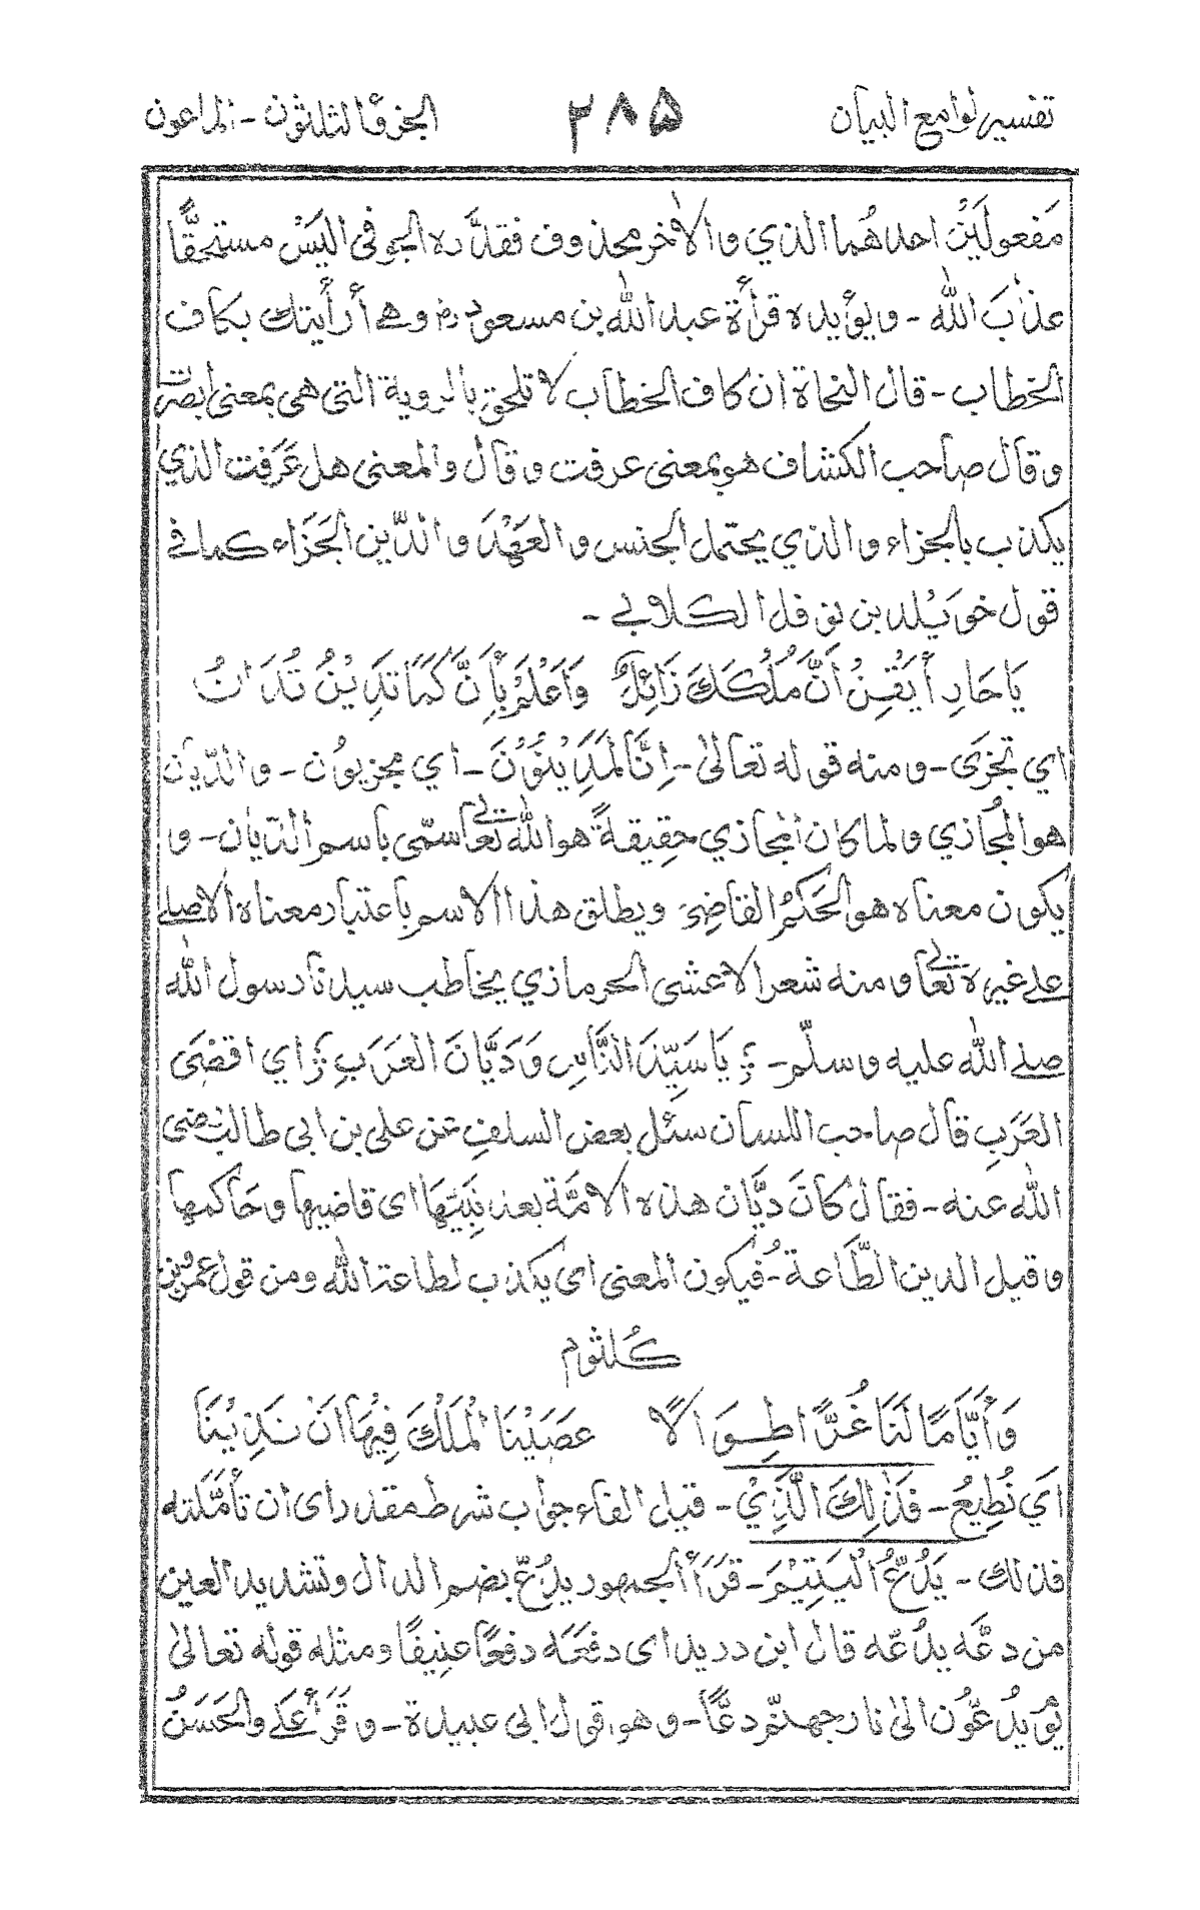 تفسير لوامع البيان ٢٨٥ الجزء الثلثون - الماعون
مَفعولَيْن احدهُما الذي والاٰخر محذوف فقدَّره الجوفى اليَسْ مستحقًّا
عذٰبَ اللّٰه - ويؤيده قرأة عبد اللّٰه بن مسعود رض وهے أرأيتك بكاف
الخطاب - قال النحاة ان كاف الخطاب لا تلحق بالروية التى هى بمعنى أبصرت
وقال صاحب الكشاف هو بمعنى عرفت وقال والمعنى هل عَرَفت الذي
يكذب بالجزاء والذي يحتمل الجنس والعَهْدَ والدِّين الجَزَاء كما فے
قول خوَيْلد بن نوفل الكلابے -
يَا حَارِ أَيْقِنْ أَنَّ مُلْكَكَ زَائِلٌ وَاعْلَمْ بِأَنَّ كَمَا تَدِيْنُ تُدَانُ
اي تجزَى - ومنه قوله تعالىٰ - اِنَّا لَمَدِيْنُوْنَ - اي مجزيوُن - والدّيّان
هو المُجازي ولما كان المجازي حقِيقةً هو اللّٰه تعالے سمّى باسم الدّيّان - و
يكون معناه هو الحَكمُ القاضِى ويطلق هذا الاسم باعتبار معناه الاصلے
علے غيره تعالے ومنه شعر الاعشى الحرمازي يخاطب سيدنا رسول اللّٰه
صلے اللّٰه عليه وسلّم - ؏ يَا سَيِّدَ النَّاسِ وَدَيَّانَ العَرَبِ ؏ اي اقضَى
العَرَبِ قال صاحب اللسان سئل بعض السلفِ عن على بن ابى طالب رضى
اللّٰه عنه - فقال كَانَ ديَّان هذه الامَّة بعد نَبِيِّهَا اى قاضيها وحَاكمها
وقيل الدين الطَّاعة - فيكون المعنى اى يكذب لطاعة اللّٰه ومن قول عمرو بن
كُلثوم
وَأَيَّامًا لَنَا غُرًّا طِوَالًا عَصَيْنَا الْمَلْكَ فِيْهَا انْ نَدِيْنَا
اَي نُطِيعُ - فَذٰلِكَ الَّذِيْ - قيل الفاء جواب شرط مقدر اى ان تأمَّلته
فذلك - يَدُعّ الْيَتِيْمَ - قَرَأَ الجمهور يدُعّ بضم الدال وتشديد العين
من دعَّه يدُعّه قال ابن دريد اى دفعَه دفعًا عنِيفًا ومثله قوله تعالىٰ
يوْم يدُعُّون الىٰ نار جهنّم دعًّا - وهو قول ابى عبيدة - وقَرَأ عَلے والحَسَنُ